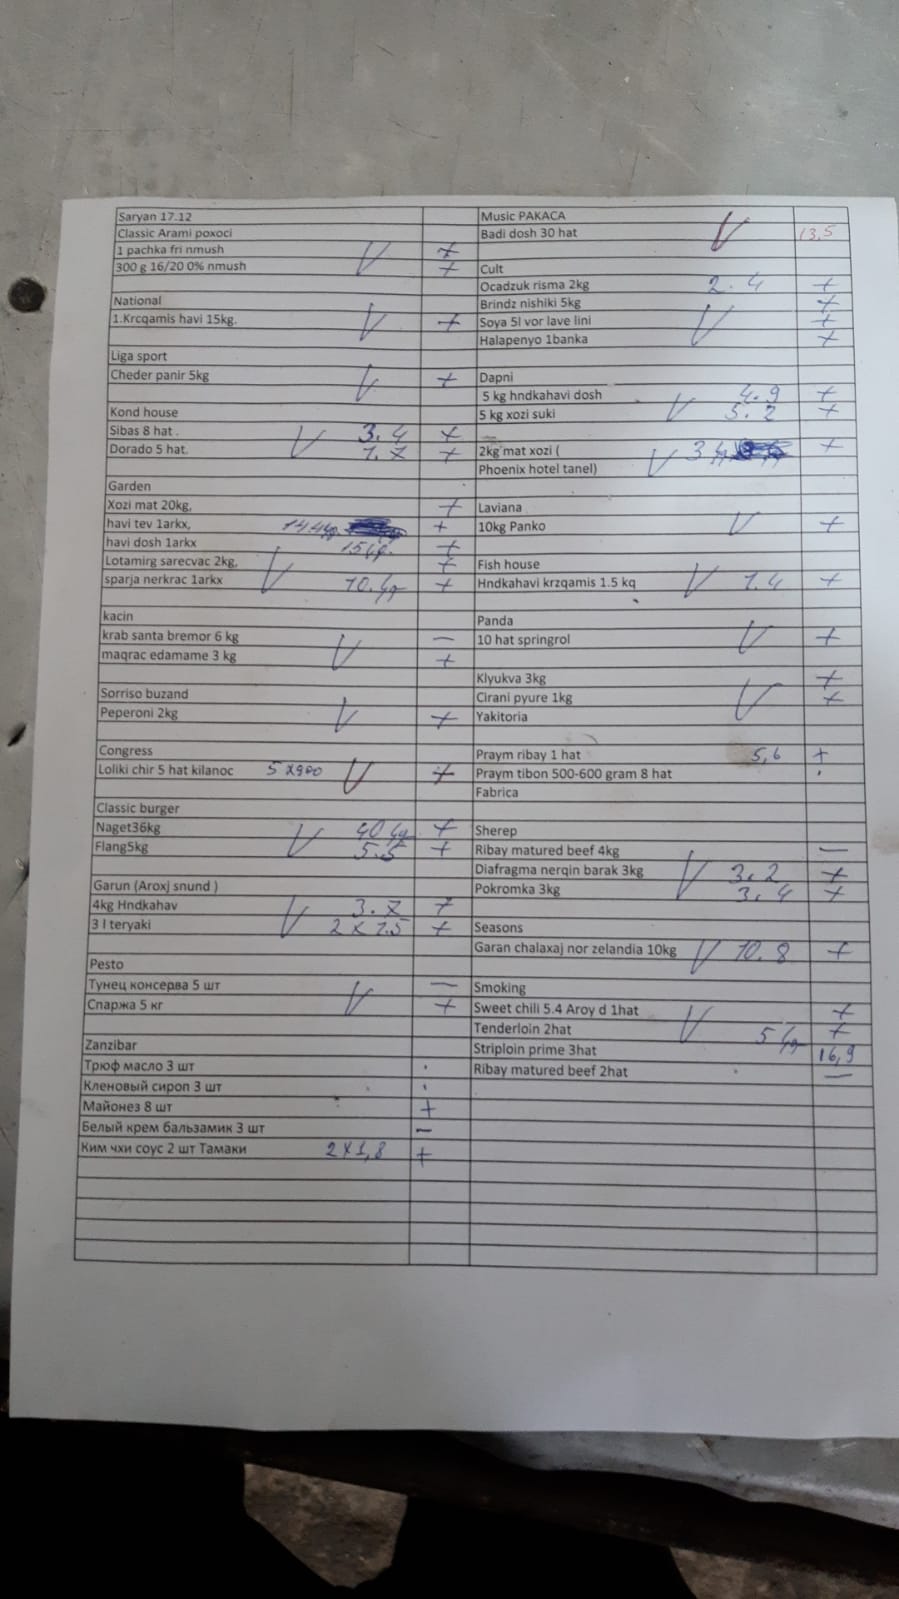 Saryan 17.12
Classic Arami poxoci
1 pachka fri nmush V +
300 g 16/20 0% nmush +
National
1.Krcqamis havi 15kg. V +
Liga sport
Cheder panir 5kg V +
Kond house
Sibas 8 hat . V 3.4 +
Dorado 5 hat. 1.7 +
Garden
Xozi mat 20kg, +
havi tev 1arkx, +
havi dosh 1arkx +
Lotamirg sarecvac 2kg, V +
sparja nerkrac 1arkx +
kacin
krab santa bremor 6 kg V —
maqrac edamame 3 kg +
Sorriso buzand
Peperoni 2kg V +
Congress
Loliki chir 5 hat kilanoc 5 x900 V +
Classic burger
Naget36kg V +
Flang5kg 5.5 +
Garun (Aroxj snund )
4kg Hndkahav V 3.7 +
3 l teryaki 2 x 1.5 +
Pesto
Тунец консерва 5 шт V —
Спаржа 5 кг +
Zanzibar
Трюф масло 3 шт .
Кленовый сироп 3 шт .
Майонез 8 шт +
Белый крем бальзамик 3 шт —
Ким чхи соус 2 шт Тамаки 2 x 1,8 +
Music PAKACA
Badi dosh 30 hat V 13.5
Cult
Ocadzuk risma 2kg 2.4 +
Brindz nishiki 5kg +
Soya 5l vor lave lini V +
Halapenyo 1banka +
Dapni
5 kg hndkahavi dosh 4.9 +
5 kg xozi suki V 5.2 +
2kg mat xozi ( V +
Phoenix hotel tanel)
Laviana
10kg Panko V +
Fish house
Hndkahavi krzqamis 1.5 kq V 1.4 +
Panda
10 hat springrol V +
Klyukva 3kg +
Cirani pyure 1kg V +
Yakitoria
Praym ribay 1 hat 5,6 +
Praym tibon 500-600 gram 8 hat .
Fabrica
Sherep
Ribay matured beef 4kg —
Diafragma nerqin barak 3kg V 3.2 +
Pokromka 3kg 3.4 +
Seasons
Garan chalaxaj nor zelandia 10kg V 10.8 +
Smoking
Sweet chili 5.4 Aroy d 1hat V +
Tenderloin 2hat +
Striploin prime 3hat 16,9
Ribay matured beef 2hat —